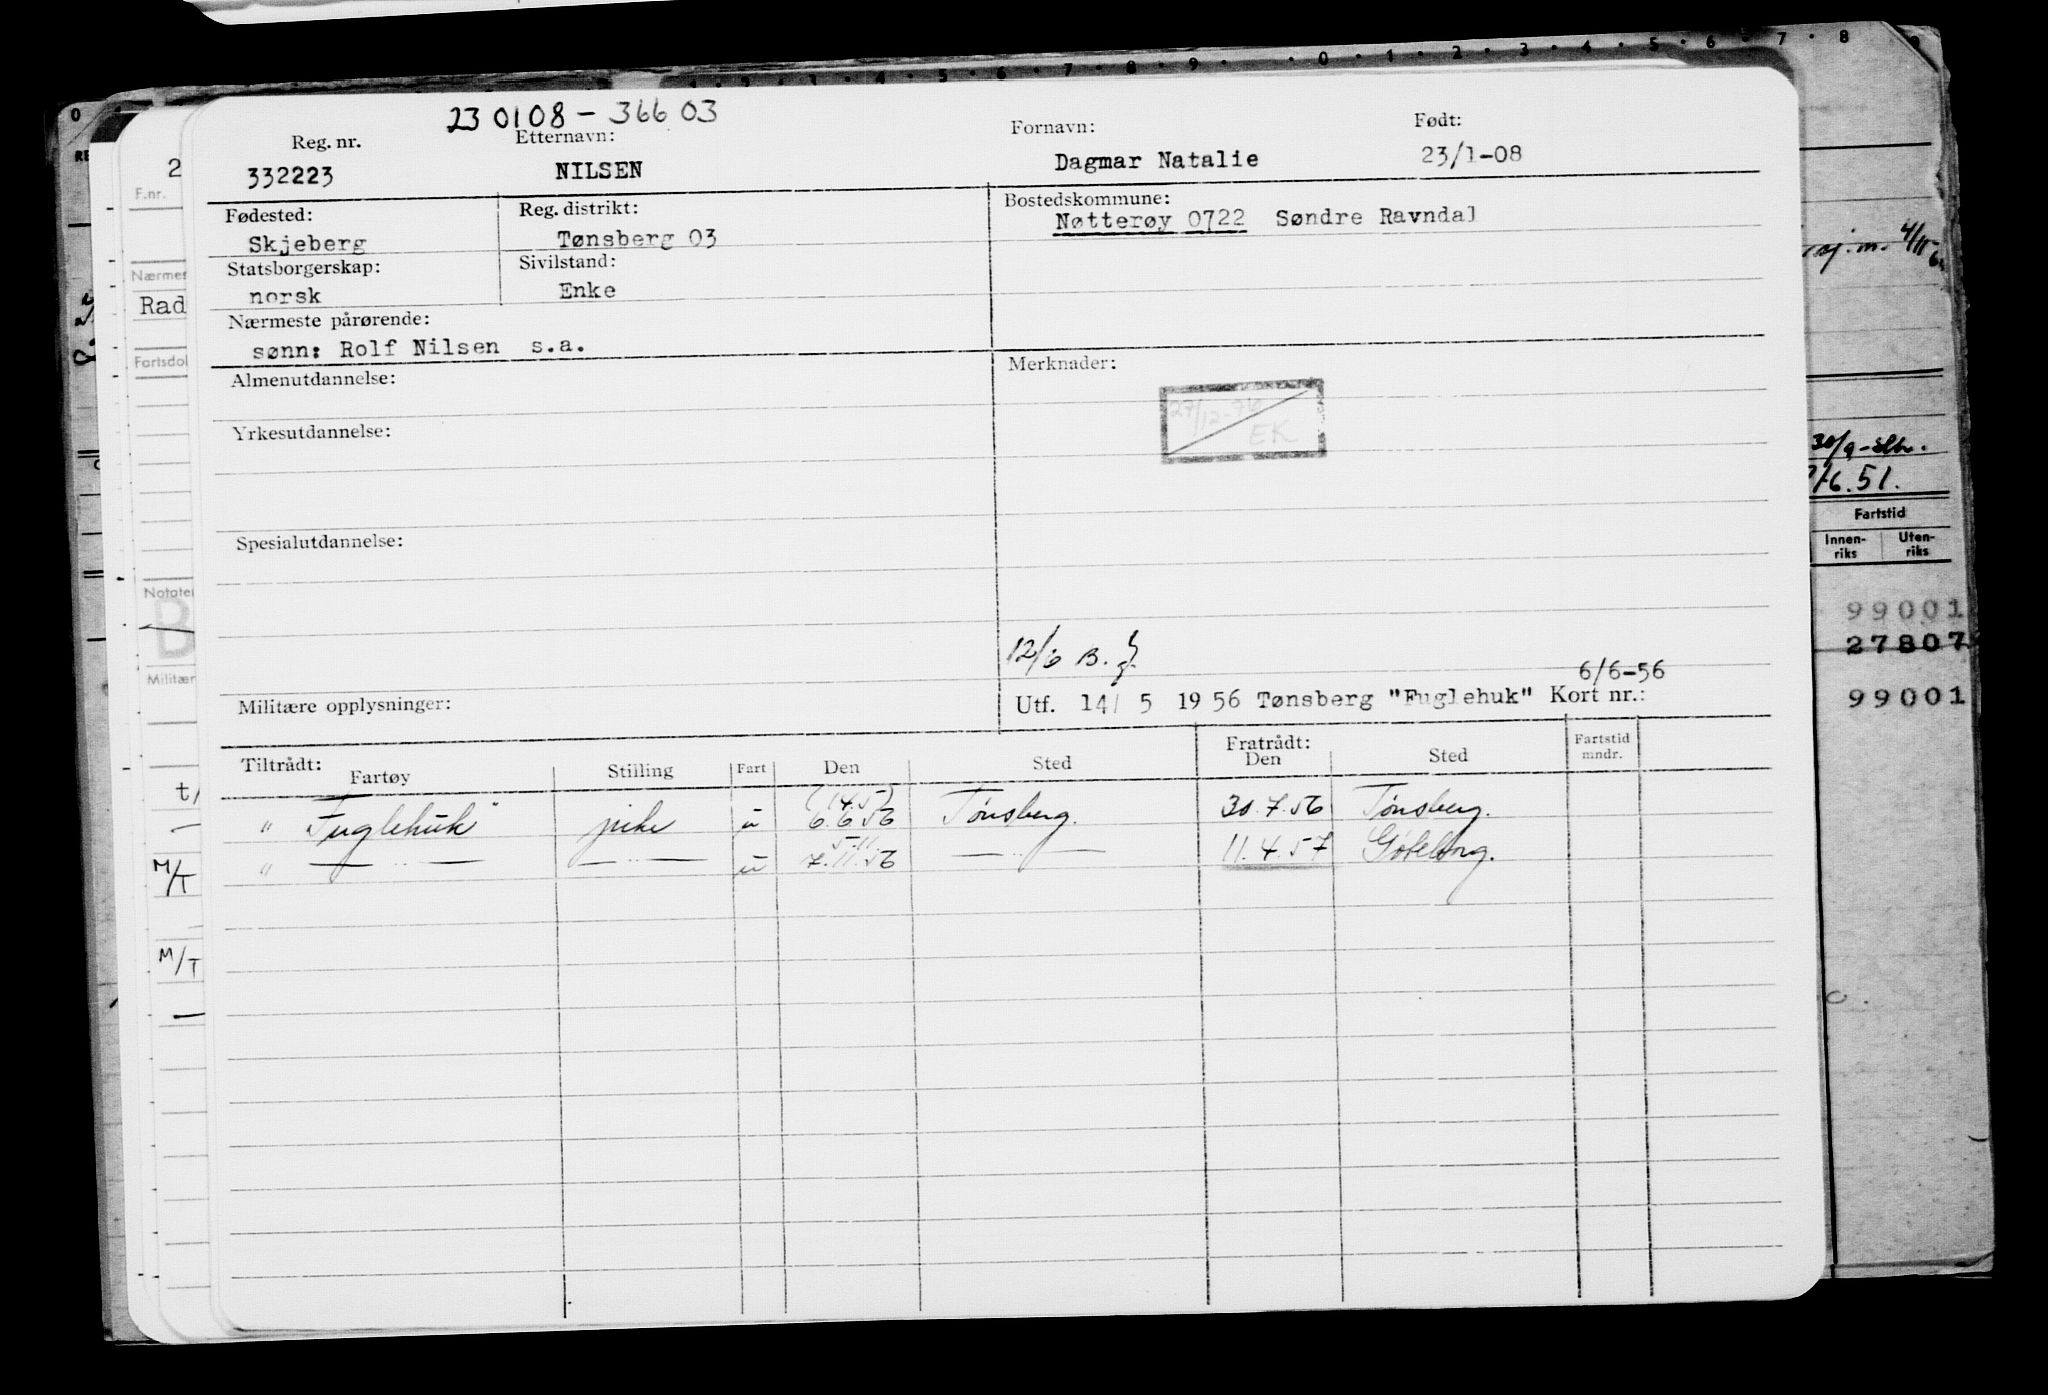 23 01 08 - 366 03
Reg. nr. Etternavn: Fornavn: Født:
332223 NILSEN Dagmar Natalie 23/1-08
Fødested: Reg. distrikt: Bostedskommune:
Skjeberg Tønsberg 03 Nøtterøy 0722 Søndre Ravndal
Statsborgerskap: Sivilstand:
norsk Enke
Nærmeste pårørende:
sønn: Rolf Nilsen s.a.
Almenutdannelse: Merknader:
27/12-74
EK
Yrkesutdannelse:
Spesialutdannelse:
12/6 B.
6/6-56
Militære opplysninger: Utf. 14/ 5 19 56 Tønsberg "Fuglehuk" Kort nr.:
Tiltrådt: Fratrådt:
Fartøy Stilling Fart Den Sted Den Sted Fartstid mndr.
(14.5)
" Fuglehuk" pike u 6.6.56 Tønsberg. 30.7.56 Tønsberg.
5.11
" — " — — " — u 7.11.56 — " — 11.4.57 Göteborg.
2
F.nr.
Nærmes
Rad
Fartsdol
Notater
B
Militær
t/
M/T
M/T
4/11-6
30/9-
/6.51.
Fartstid
Innen-riks Uten-riks
99001
27807
99001